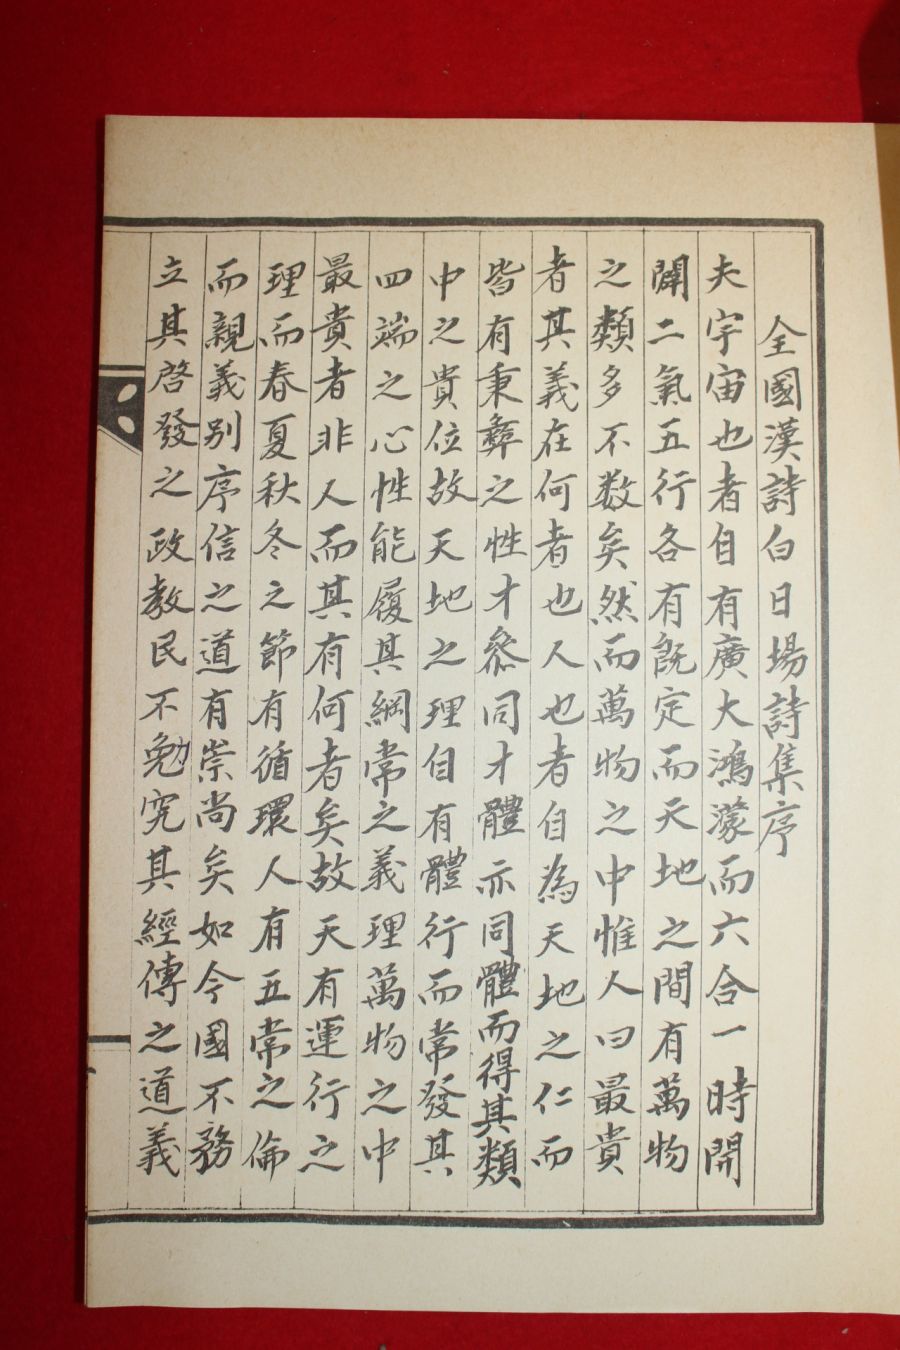 全國漢詩白日場詩集序
夫宇宙也者自有廣大鴻濛而六合一時開
闢二氣五行各有旣定而天地之間有萬物
之類多不数矣然而萬物之中惟人曰最貴
者其義在何者也人也者自為天地之仁而
皆有秉彝之性才叅同才體亦同體而得其類
中之貴位故天地之理自有體行而常發其
四端之心性能履其綱常之義理萬物之中
最貴者非人而其有何者矣故天有運行之
理而春夏秋冬之節有循環人有五常之倫
而親義別序信之道有崇尚矣如今國不務
立其啓發之政教民不勉究其經傳之道義